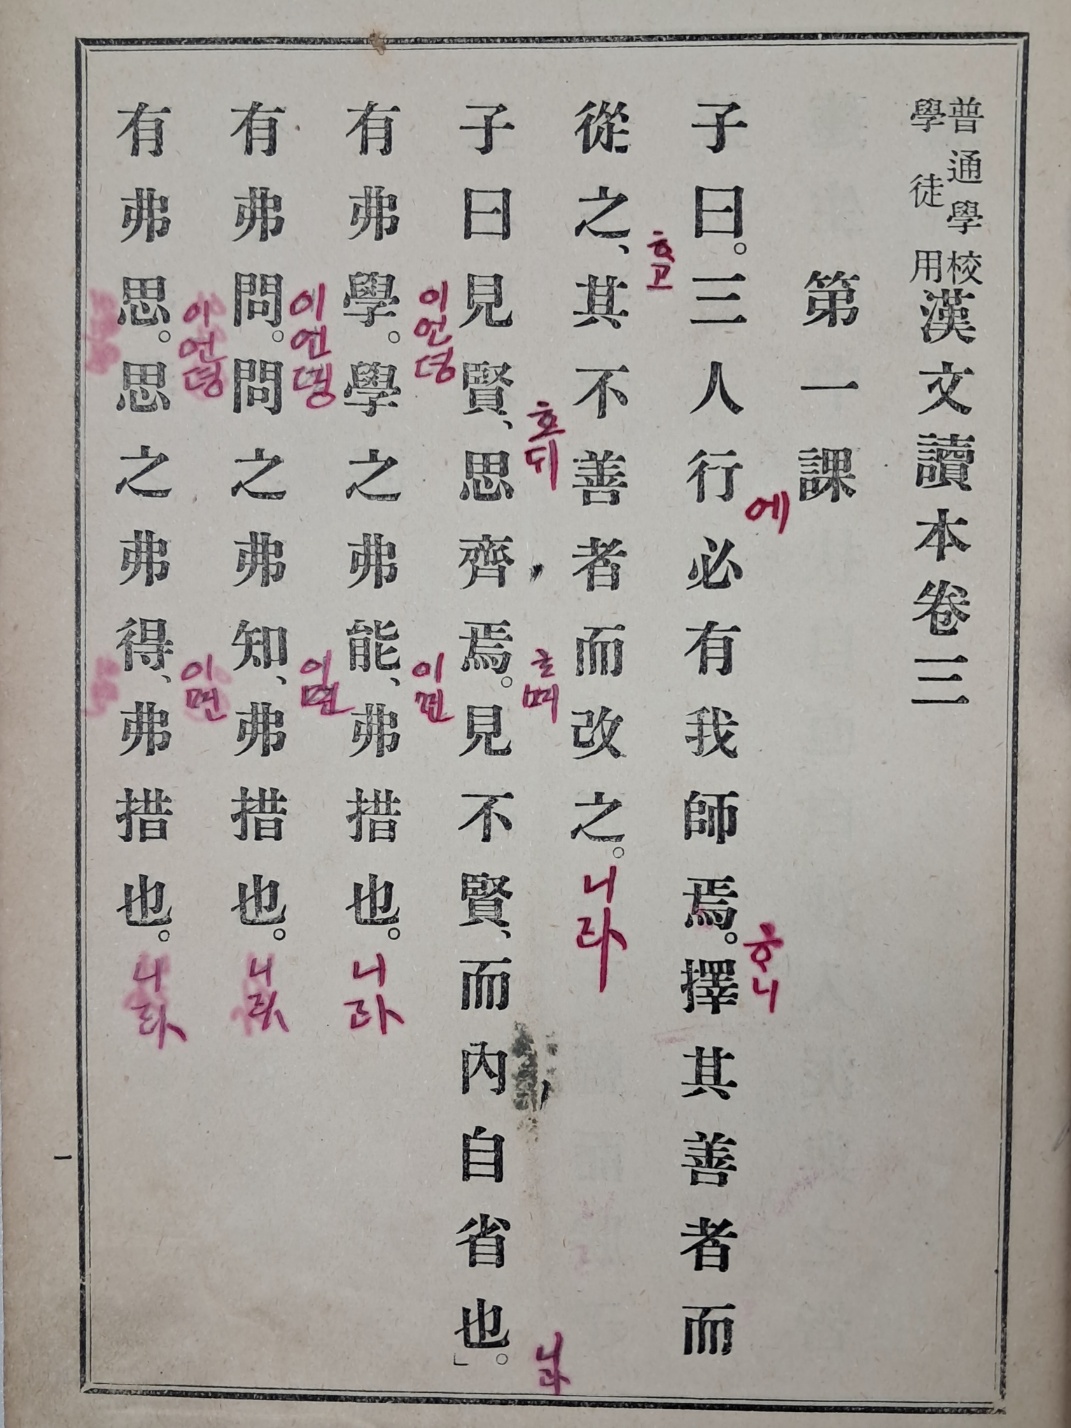 普通學校
學徒用
漢文讀本卷三
第一課
子曰。三人行에必有我師焉。ᄒᆞ니擇其善者而
從之、ᄒᆞ고其不善者而改之。니라
子曰見賢、ᄒᆞ되思齊焉。ᄒᆞ며見不賢、而內自省也。」니라
有弗學。이언뎡學之弗能、이면弗措也。니라
有弗問。이언뎡問之弗知、이면弗措也。니라
有弗思。이언뎡思之弗得、이면弗措也。니라
一